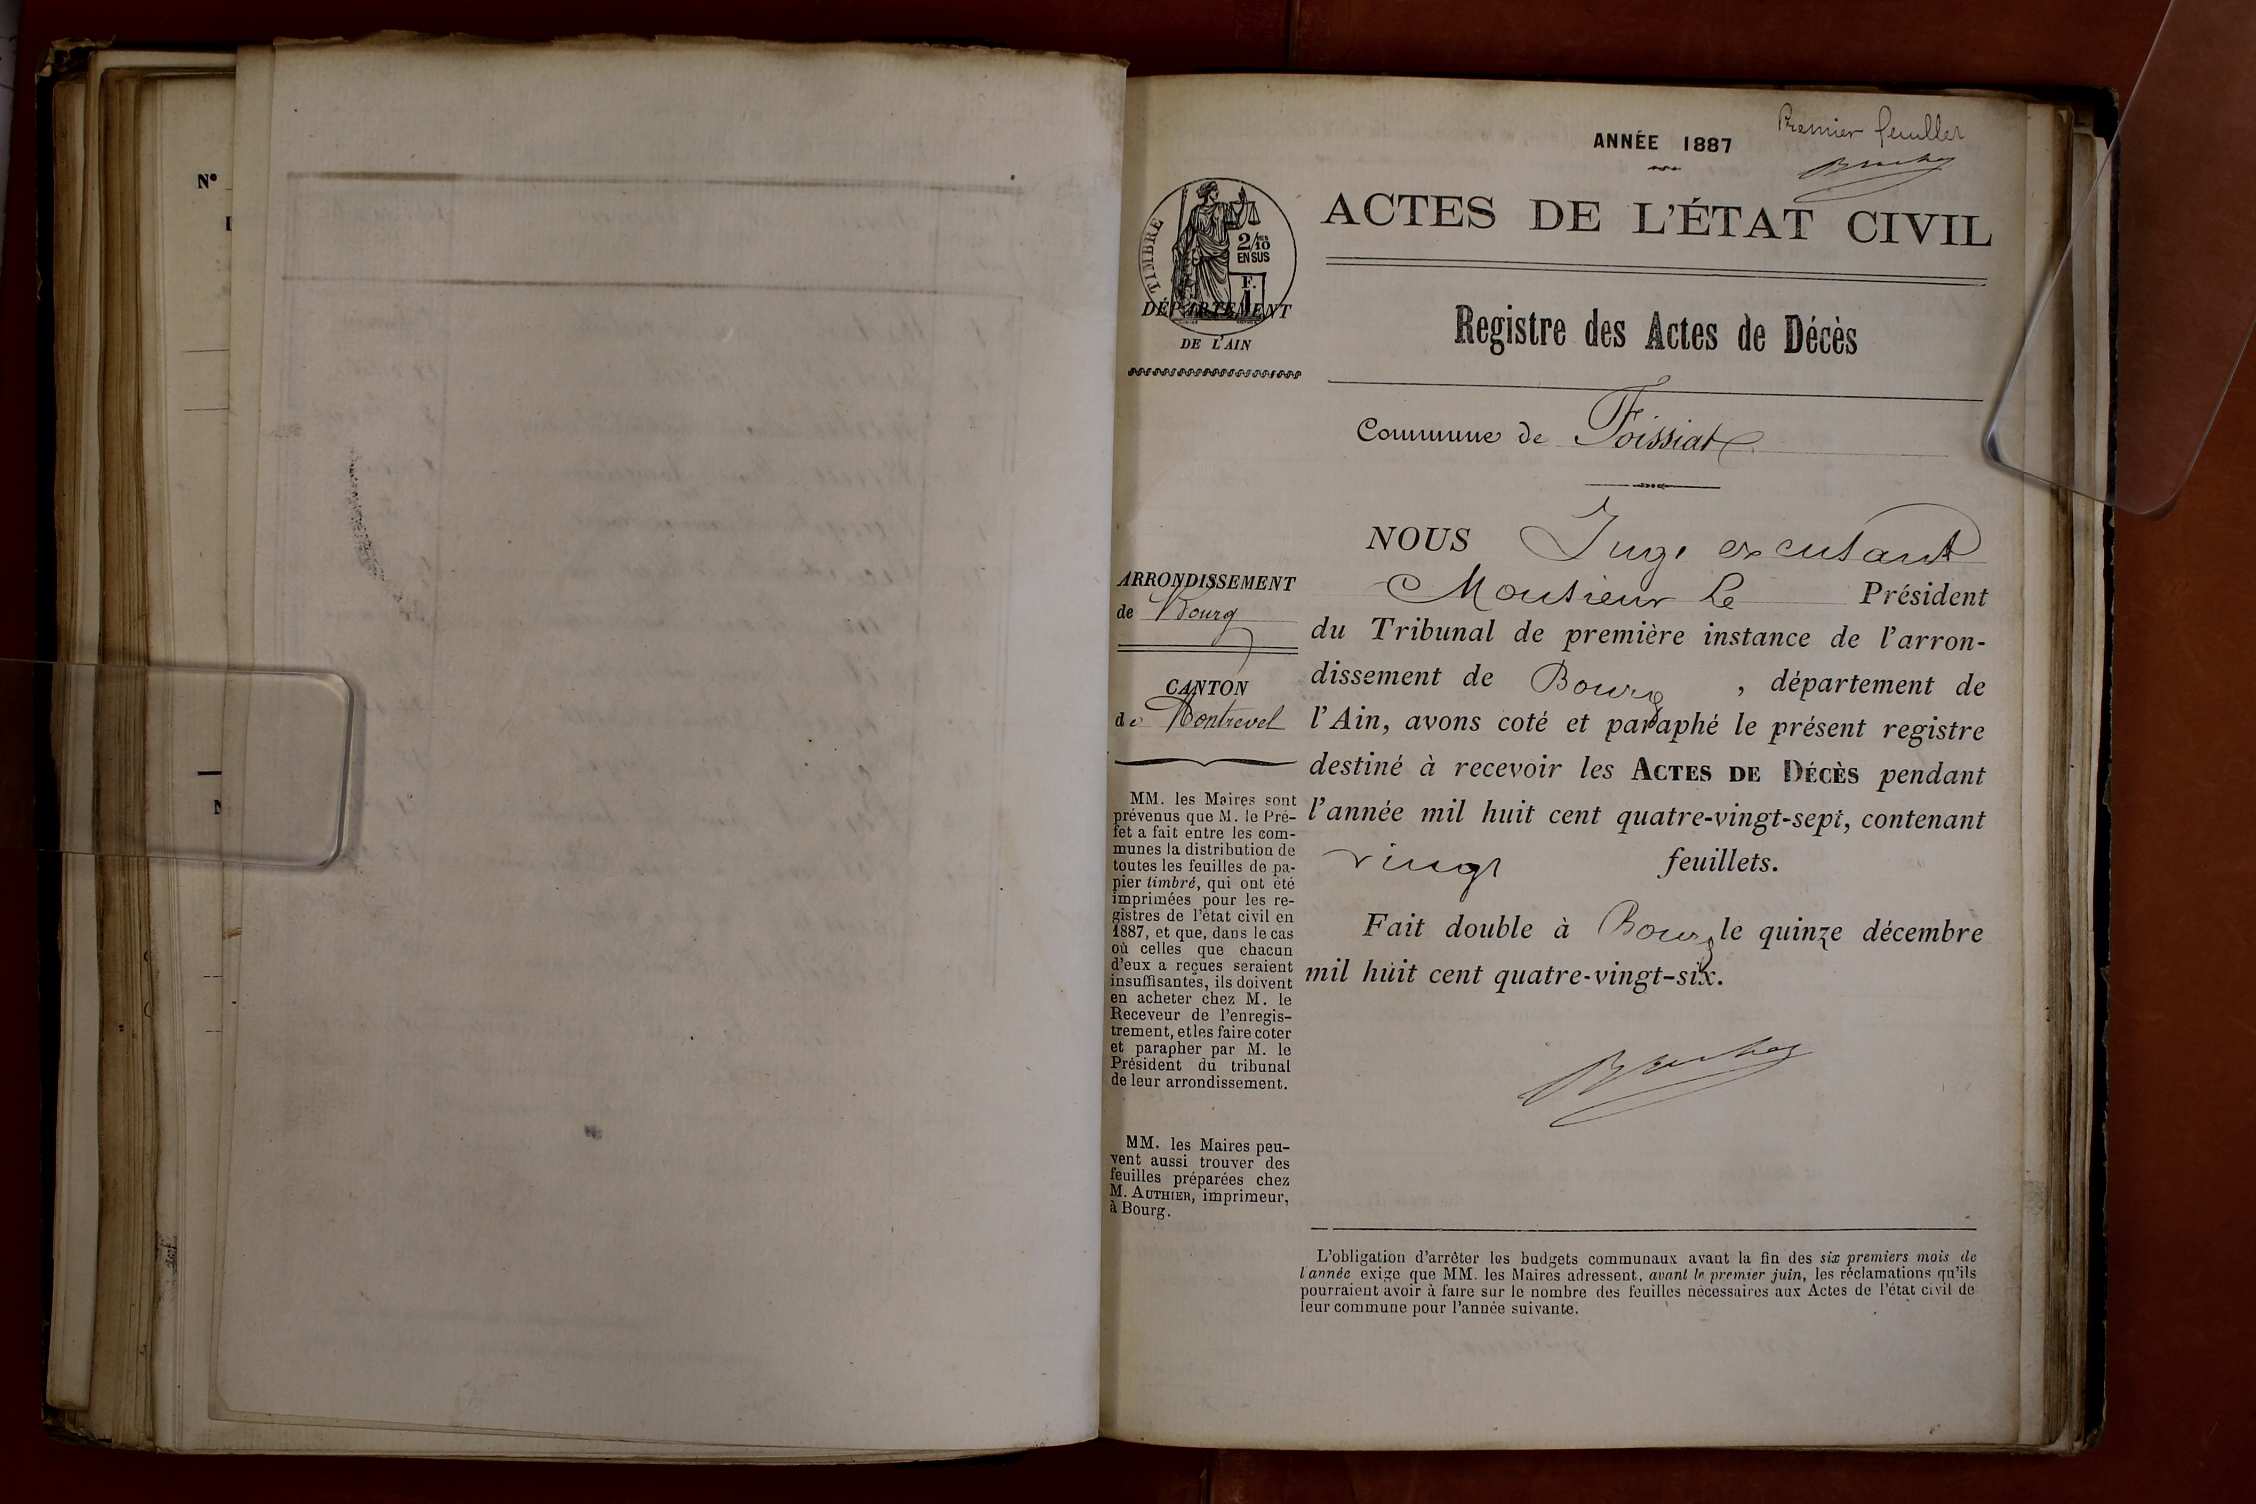 N°
ANNÉE 1887
Premier feuillet
ACTES DE L'ÉTAT CIVIL
TIMBRE
2/10
EN SUS
F.
1
DÉPARTEMENT
DE L'AIN
Registre des Actes de Décès
Commune de Foissiat
ARRONDISSEMENT
de Bourg
CANTON
de Montrevel
MM. les Maires sont
prévenus que M. le Pré-
fet a fait entre les com-
munes la distribution de
toutes les feuilles de pa-
pier timbré, qui ont été
imprimées pour les re-
gistres de l'état civil en
1887, et que, dans le cas
où celles que chacun
d'eux a reçues seraient
insuffisantes, ils doivent
en acheter chez M. le
Receveur de l'enregis-
trement, et les faire coter
et parapher par M. le
Président du tribunal
de leur arrondissement.
MM. les Maires peu-
vent aussi trouver des
feuilles préparées chez
M. AUTHIER, imprimeur,
à Bourg.
NOUS Juge
Monsieur Le Président
du Tribunal de première instance de l'arron-
dissement de Bourg, département de
l'Ain, avons coté et paraphé le présent registre
destiné à recevoir les ACTES DE DÉCÈS pendant
l'année mil huit cent quatre-vingt-sept, contenant
vingt feuillets.
Fait double à Bourg le quinze décembre
mil huit cent quatre-vingt-six.
L'obligation d'arrêter les budgets communaux avant la fin des six premiers mois de
l'année exige que MM. les Maires adressent, avant le premier juin, les réclamations qu'ils
pourraient avoir à faire sur le nombre des feuilles nécessaires aux Actes de l'état civil de
leur commune pour l'année suivante.